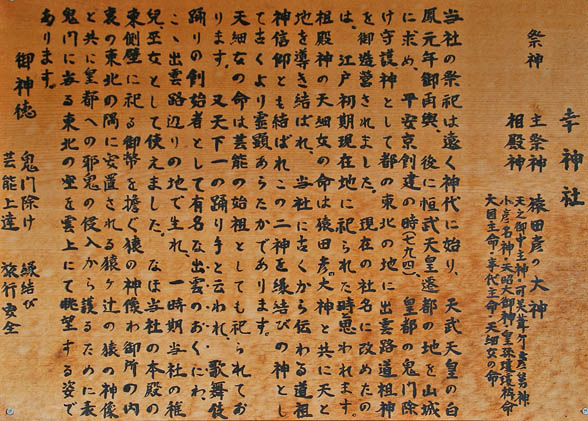 幸神社
祭神 主祭神 猿田彦の大神
相殿神 天之御中主神・可美葦牙彦舅神
少彦名神・天照大御神・皇孫瓊瓊杵命
大国主命・事代主命・天鈿女の命
当社の祭祀は遠く神代に始り、天武天皇の白
鳳元年御再興、後に桓武天皇遷都の地を山城
に求め、平安京創建の時(七九四)皇都の鬼門除
け守護神として都の東北の地に出雲路道祖神
を御造営されました。現在の社名に改めたの
は、江戸初期現在地に祀られた時思われます。
祖殿神の天細女の命は猿田彦大神と共に天と
地を導き結ばれ、当社に古くから伝わる道祖
神信仰とも結ばれこの二神を縁結びの神とし
て古くより霊顕あらたかであります。
天細女の命は芸能の始祖としても祀られてお
ります。又天下一の踊り手と云われ、歌舞伎
踊りの創始者として有名な出雲のおくには、
こゝ出雲路辺りの地で生れ、一時期当社の稚
児巫女として使えました。なほ当社の本殿の
東側壁に祀る御幣を擔ぐ猿の神像わ御所の内
裏の東北の隅に安置される猿ヶ辻の猿の神像
と共に皇都への邪鬼の侵入から護るために表
鬼門に当る東北の空を雲上にて眺望する姿で
あります。
御神徳 鬼門除け 縁結び
芸能上達 旅行安全